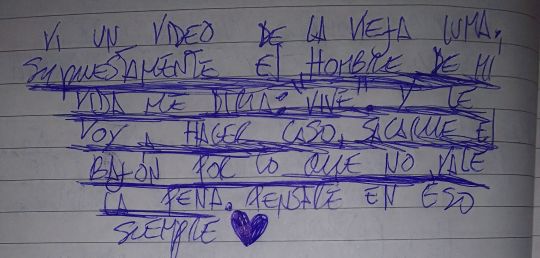 VI UN VIDEO DE LA VIEJA LUMA;
SUPUESTAMENTE EL HOMBRE DE MI
VIDA ME DIRIA: "VIVE". Y LE
VOY A HACER CASO, SACARME EL
BAJÓN POR LO QUE NO VALE
LA PENA. PENSARE EN ESO
SIEMPRE